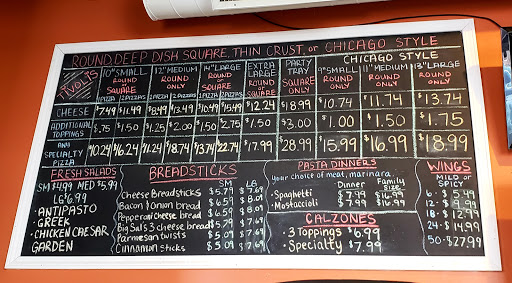 ROUND, DEEP DISH SQUARE, THIN CRUST, or CHICAGO STYLE
10" SMALL ROUND or SQUARE
1 PIZZA 2 PIZZAS
12" MEDIUM ROUND ONLY
1 PIZZA 2 PIZZAS
14" LARGE ROUND or SQUARE
1 PIZZA 2 PIZZAS
EXTRA LARGE ROUND or SQUARE
PARTY TRAY SQUARE ONLY
CHICAGO STYLE
9" SMALL ROUND ONLY
11" MEDIUM ROUND ONLY
13" LARGE ROUND ONLY
CHEESE $7.49 $11.99 $8.49 $13.49 $10.49 $15.49 $12.24 $18.99 $10.74 $11.74 $13.74
ADDITIONAL TOPPINGS $.75 $1.50 $1.25 $2.00 $1.50 $2.75 $1.50 $3.00 $1.00 $1.50 $1.75
ANY SPECIALTY PIZZA $10.24 $16.24 $11.24 $18.74 $13.74 $22.74 $17.99 $28.99 $15.99 $16.99 $18.99
FRESH SALADS
SM $4.99 MED $5.99
LG $6.99
• ANTIPASTO
• GREEK
• CHICKEN CAESAR
GARDEN
BREADSTICKS
SM LG
Cheese Breadsticks $5.79 $7.89
Bacon & Onion bread $6.59 $8.09
Pepperoni cheese bread $6.59 $8.09
Big Sal's 3 cheese bread $5.79 $7.69
Parmesan twists $5.09 $7.69
Cinnamon sticks $5.09 $7.69
PASTA DINNERS
Your choice of meat, marinara
Dinner Family Size
• Spaghetti $7.99 $16.99
• Mostaccioli $7.99 $16.99
CALZONES
• 3 Toppings $6.99
• Specialty $7.99
WINGS
MILD or SPICY
6 - $5.49
12 - $9.99
18 - $12.99
24 - $14.99
50 - $27.99